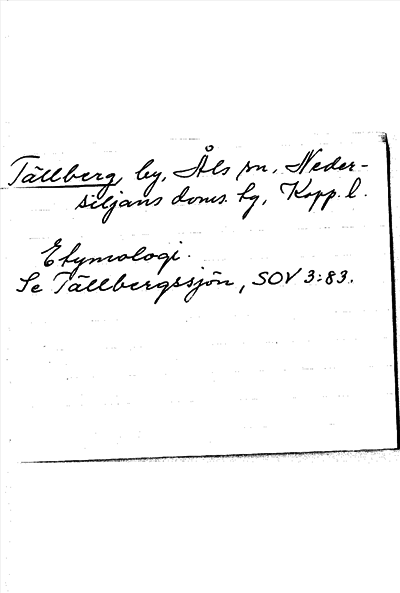 Tällberg, by, Åls sn. Neder-
siljans doms. tg, Kopp. l.
Etymologi.
Se Tällbergssjön, SOV 3:83.